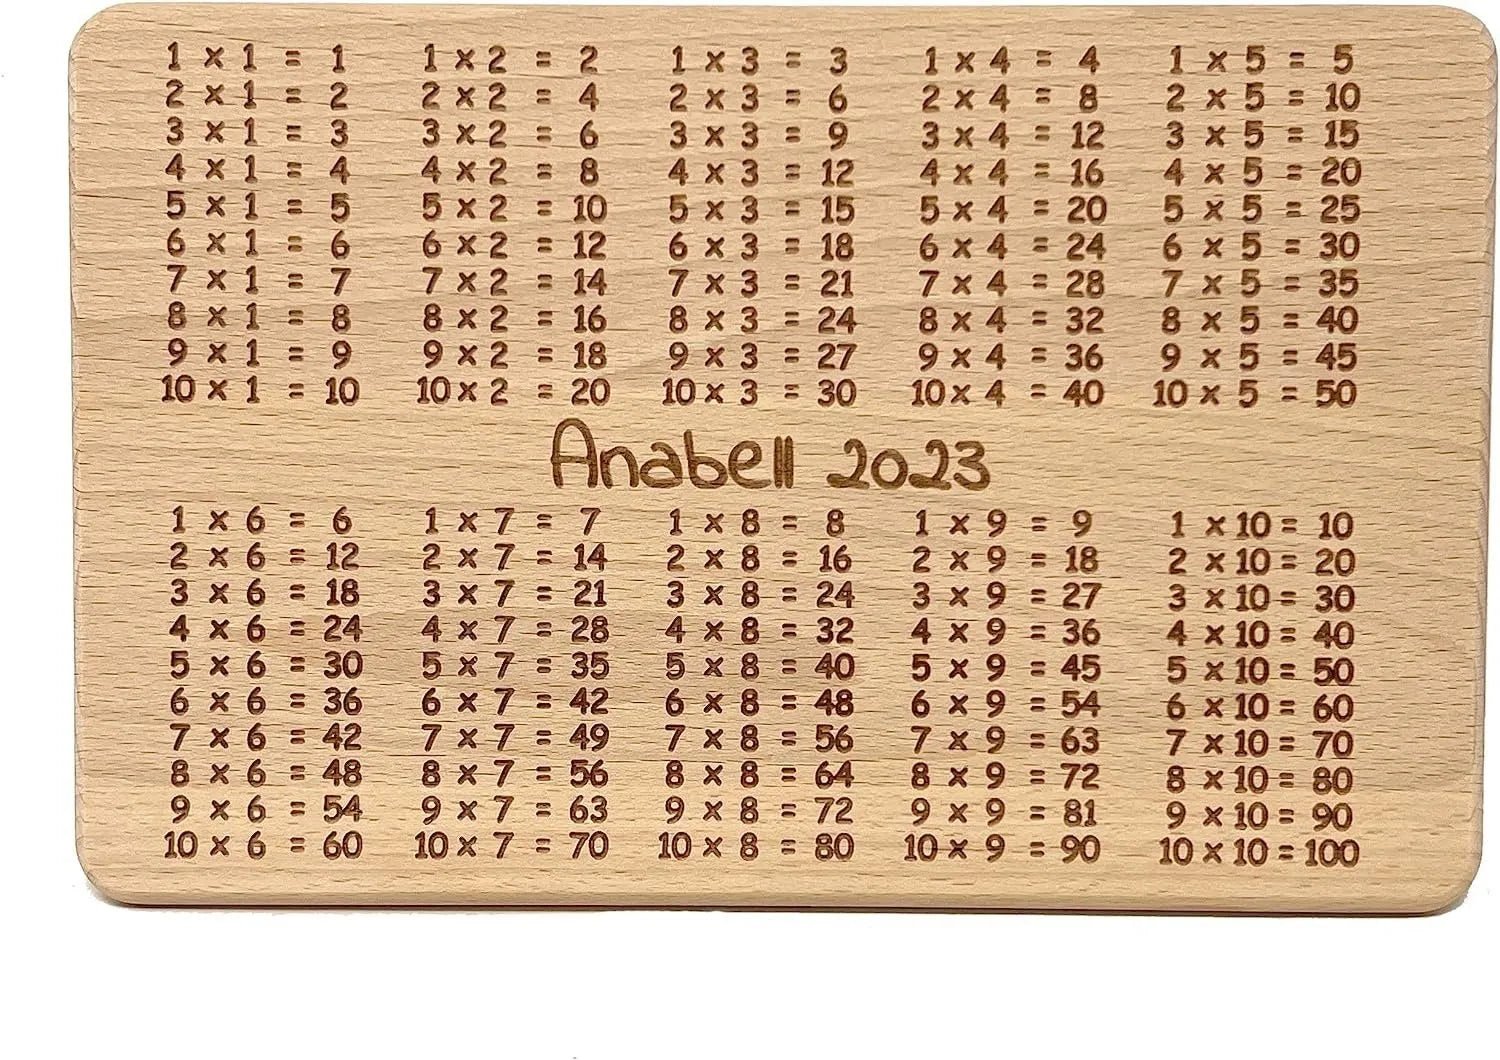 1 × 1 = 1 1 × 2 = 2 1 × 3 = 3 1 × 4 = 4 1 × 5 = 5
2 × 1 = 2 2 × 2 = 4 2 × 3 = 6 2 × 4 = 8 2 × 5 = 10
3 × 1 = 3 3 × 2 = 6 3 × 3 = 9 3 × 4 = 12 3 × 5 = 15
4 × 1 = 4 4 × 2 = 8 4 × 3 = 12 4 × 4 = 16 4 × 5 = 20
5 × 1 = 5 5 × 2 = 10 5 × 3 = 15 5 × 4 = 20 5 × 5 = 25
6 × 1 = 6 6 × 2 = 12 6 × 3 = 18 6 × 4 = 24 6 × 5 = 30
7 × 1 = 7 7 × 2 = 14 7 × 3 = 21 7 × 4 = 28 7 × 5 = 35
8 × 1 = 8 8 × 2 = 16 8 × 3 = 24 8 × 4 = 32 8 × 5 = 40
9 × 1 = 9 9 × 2 = 18 9 × 3 = 27 9 × 4 = 36 9 × 5 = 45
10 × 1 = 10 10 × 2 = 20 10 × 3 = 30 10 × 4 = 40 10 × 5 = 50
Anabell 2023
1 × 6 = 6 1 × 7 = 7 1 × 8 = 8 1 × 9 = 9 1 × 10 = 10
2 × 6 = 12 2 × 7 = 14 2 × 8 = 16 2 × 9 = 18 2 × 10 = 20
3 × 6 = 18 3 × 7 = 21 3 × 8 = 24 3 × 9 = 27 3 × 10 = 30
4 × 6 = 24 4 × 7 = 28 4 × 8 = 32 4 × 9 = 36 4 × 10 = 40
5 × 6 = 30 5 × 7 = 35 5 × 8 = 40 5 × 9 = 45 5 × 10 = 50
6 × 6 = 36 6 × 7 = 42 6 × 8 = 48 6 × 9 = 54 6 × 10 = 60
7 × 6 = 42 7 × 7 = 49 7 × 8 = 56 7 × 9 = 63 7 × 10 = 70
8 × 6 = 48 8 × 7 = 56 8 × 8 = 64 8 × 9 = 72 8 × 10 = 80
9 × 6 = 54 9 × 7 = 63 9 × 8 = 72 9 × 9 = 81 9 × 10 = 90
10 × 6 = 60 10 × 7 = 70 10 × 8 = 80 10 × 9 = 90 10 × 10 = 100